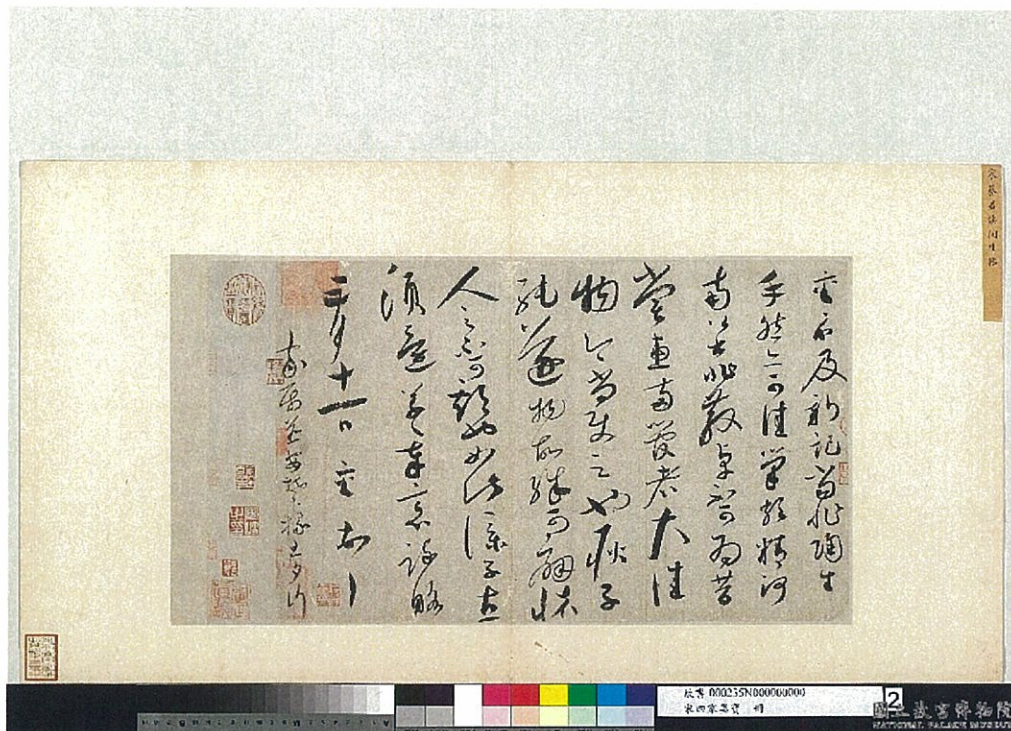 宋蔡君謨陶生帖
襄示及新記當非陶生
手然亦可佳筆頗精訶
南公非散卓不可為昔
嘗惠兩管者大佳
物今尚使之也耿子
純遂物故殊可痛懷
人之不可期也如此僕子直
須還草草奉意疏略
正月十一日襄頓首
家屬並安楊掾旦夕行
故書 000235N000000000
宋四家墨寶 冊
2
國立故宮博物院
NATIONAL PALACE MUSEUM